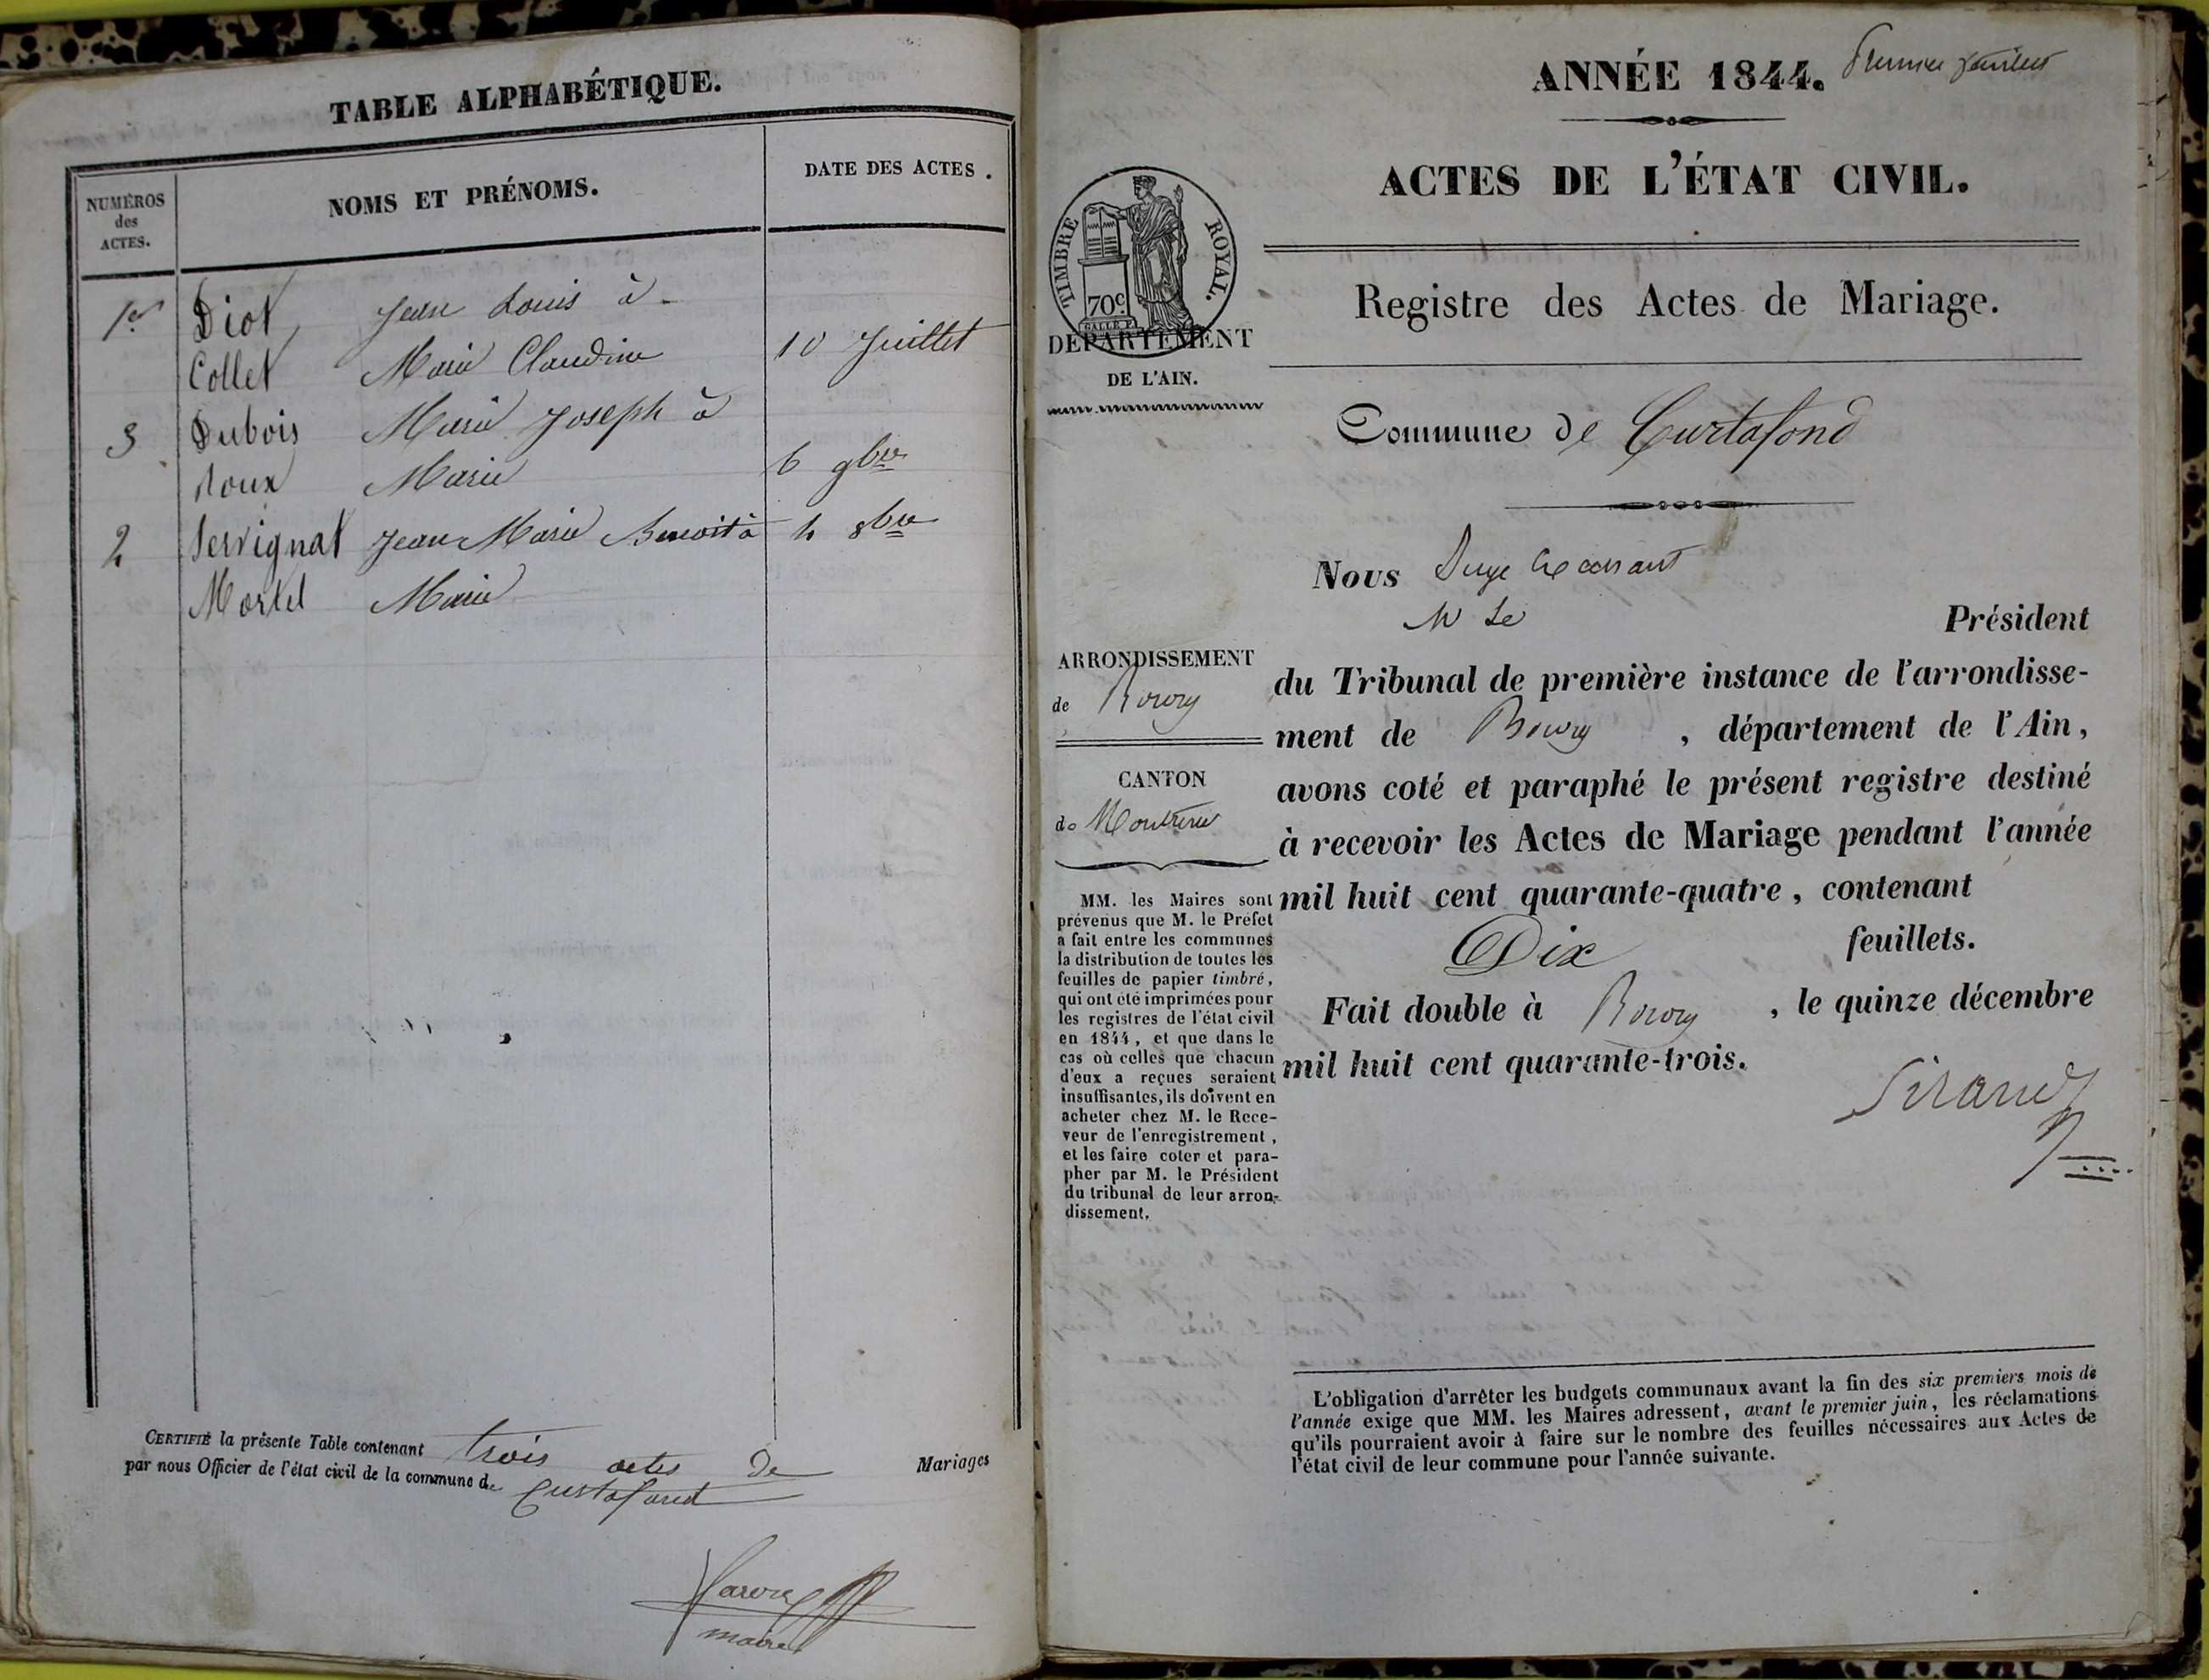 TABLE ALPHABÉTIQUE.
NUMÉROS
des
ACTES.
NOMS ET PRÉNOMS.
DATE DES ACTES.
1er Diot Jean Louis à
Collet Marie Claudine 10 Juillet
3 Dubois Marie Joseph à
Roux Marie 6 9bre
2 Servignat Jean Marie Benoit à 4 8bre
Mortel Marie
CERTIFIÉ la présente Table contenant trois actes de Mariages
par nous Officier de l'état civil de la commune de Curtafond
maire
ANNÉE 1844. Premier feuillet
ACTES DE L'ÉTAT CIVIL.
TIMBRE ROYAL.
70c
DÉPARTEMENT
DE L'AIN.
Registre des Actes de Mariage.
Commune de Curtafond
Nous Juge
Président
ARRONDISSEMENT
de Bourg
CANTON
de Montrevel
du Tribunal de première instance de l'arrondisse-
ment de Bourg, département de l'Ain,
avons coté et paraphé le présent registre destiné
à recevoir les Actes de Mariage pendant l'année
mil huit cent quarante-quatre, contenant
Dix feuillets.
Fait double à Bourg, le quinze décembre
mil huit cent quarante-trois.
MM. les Maires sont
prévenus que M. le Préfet
a fait entre les communes
la distribution de toutes les
feuilles de papier timbré,
qui ont été imprimées pour
les registres de l'état civil
en 1844, et que dans le
cas où celles que chacun
d'eux a reçues seraient
insuffisantes, ils doivent en
acheter chez M. le Rece-
veur de l'enregistrement,
et les faire coter et para-
pher par M. le Président
du tribunal de leur arron-
dissement.
L'obligation d'arrêter les budgets communaux avant la fin des six premiers mois de
l'année exige que MM. les Maires adressent, avant le premier juin, les réclamations
qu'ils pourraient avoir à faire sur le nombre des feuilles nécessaires aux Actes de
l'état civil de leur commune pour l'année suivante.